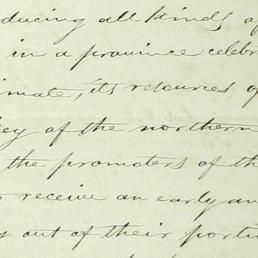 ducing all kinds of
in a province celebr
imate, its resources of
key of the northern
the promoters of th
receive an early an
out of their portio